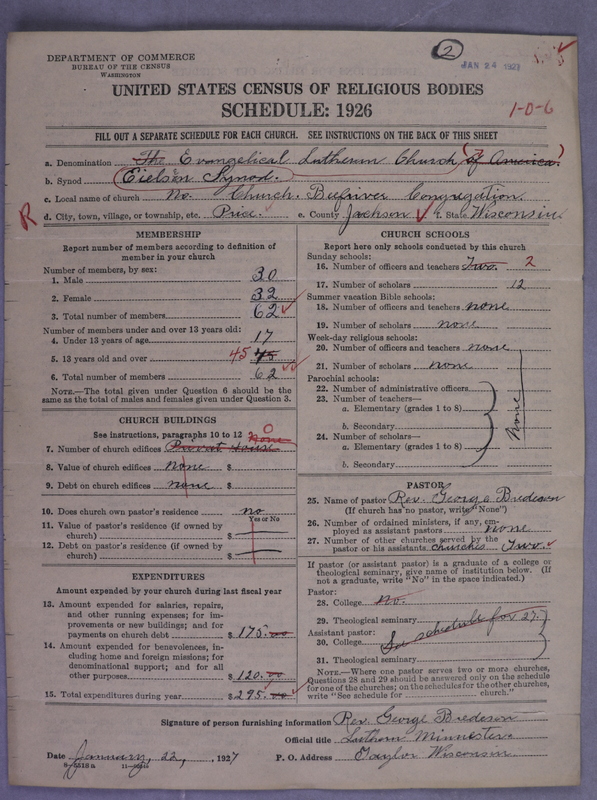 2
JAN 24 1927
DEPARTMENT OF COMMERCE
BUREAU OF THE CENSUS
WASHINGTON
UNITED STATES CENSUS OF RELIGIOUS BODIES
SCHEDULE: 1926
1-0-6
FILL OUT A SEPARATE SCHEDULE FOR EACH CHURCH. SEE INSTRUCTIONS ON THE BACK OF THIS SHEET
a. Denomination The Evangelical Lutheran Church of America.
b. Synod Eielsen Synod.
c. Local name of church No. Church. Beefriver Congregation.
d. City, town, village, or township, etc. Price. e. County Jackson f. State Wisconsin.
R
MEMBERSHIP
Report number of members according to definition of
member in your church
Number of members, by sex:
1. Male 30
2. Female 32
3. Total number of members 62
Number of members under and over 13 years old:
4. Under 13 years of age 17
5. 13 years old and over 45 45
6. Total number of members 62
NOTE.—The total given under Question 6 should be the
same as the total of males and females given under Question 3.
CHURCH BUILDINGS
See instructions, paragraphs 10 to 12
0
none
7. Number of church edifices
8. Value of church edifices none $
9. Debt on church edifices none $
10. Does church own pastor's residence no
Yes or No
11. Value of pastor's residence (if owned by
church) $
12. Debt on pastor's residence (if owned by
church) $
EXPENDITURES
Amount expended by your church during last fiscal year
13. Amount expended for salaries, repairs,
and other running expenses; for im-
provements or new buildings; and for
payments on church debt $ 175.00
14. Amount expended for benevolences, in-
cluding home and foreign missions; for
denominational support; and for all
other purposes $ 120.00
15. Total expenditures during year $ 295.00
CHURCH SCHOOLS
Report here only schools conducted by this church
Sunday schools:
16. Number of officers and teachers Two. 2
17. Number of scholars 12
Summer vacation Bible schools:
18. Number of officers and teachers none
19. Number of scholars none
Week-day religious schools:
20. Number of officers and teachers none
21. Number of scholars none
Parochial schools:
22. Number of administrative officers
23. Number of teachers—
a. Elementary (grades 1 to 8)
b. Secondary
None
24. Number of scholars—
a. Elementary (grades 1 to 8)
b. Secondary
PASTOR
25. Name of pastor Rev. George Bredesen
(If church has no pastor, write "None")
26. Number of ordained ministers, if any, em-
ployed as assistant pastors none
27. Number of other churches served by the
pastor or his assistants churches Two.
If pastor (or assistant pastor) is a graduate of a college or
theological seminary, give name of institution below. (If
not a graduate, write "No" in the space indicated.)
Pastor:
28. College No.
29. Theological seminary
See schedule for 27.
Assistant pastor:
30. College
31. Theological seminary
NOTE.—Where one pastor serves two or more churches,
Questions 28 and 29 should be answered only on the schedule
for one of the churches; on the schedules for the other churches,
write "See schedule for church."
Signature of person furnishing information Rev. George Bredesen
Official title Lutheran Minnister
Date January, 22, 1927 P. O. Address Taylor Wisconsin